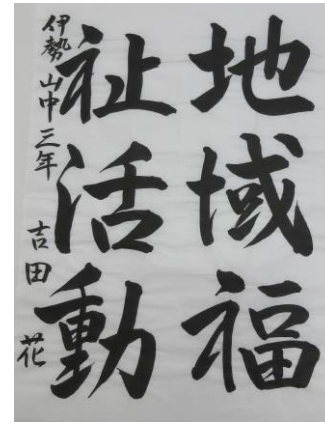 地域福
祉活動
伊勢山中三年 吉田 花